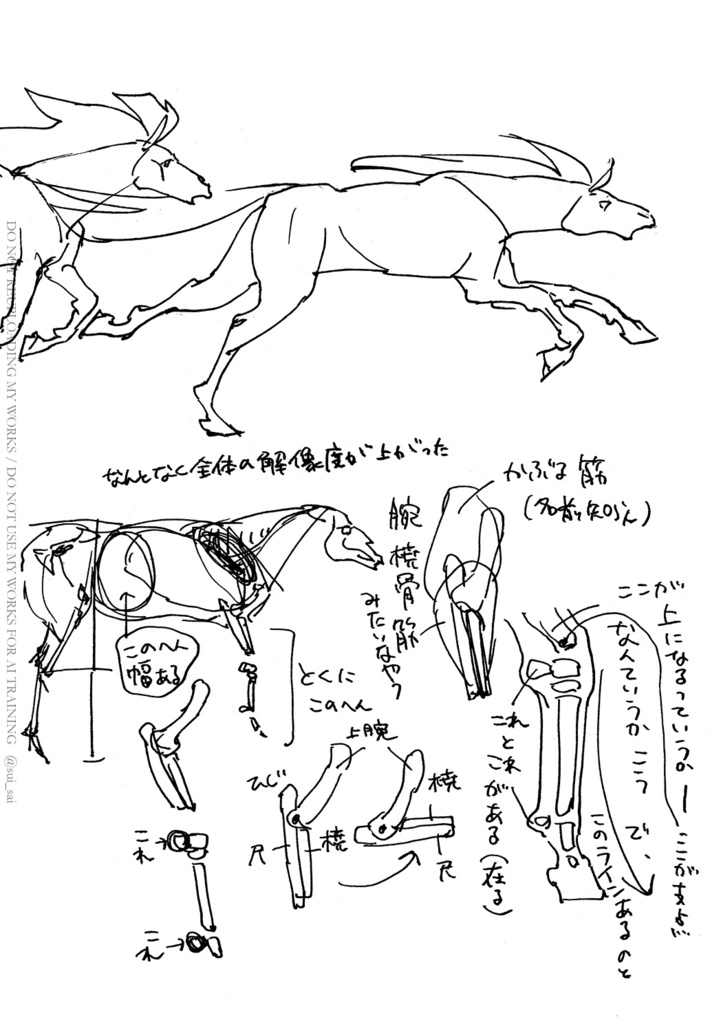 DO NOT REUPLOADING MY WORKS / DO NOT USE MY WORKS FOR AI TRAINING @sui_sai
なんとなく全体の解像度が上がった
かぶる筋
(名前知らん)
腕橈骨筋
みたいなやつ
このへん
幅ある
とくに
このへん
上腕
ひじ
尺
橈
橈
尺
これ
これ
これと
これがある(在る)
ここが
上になるっていうか
なんていうか こう
で、
このラインあるのと
ー ここが